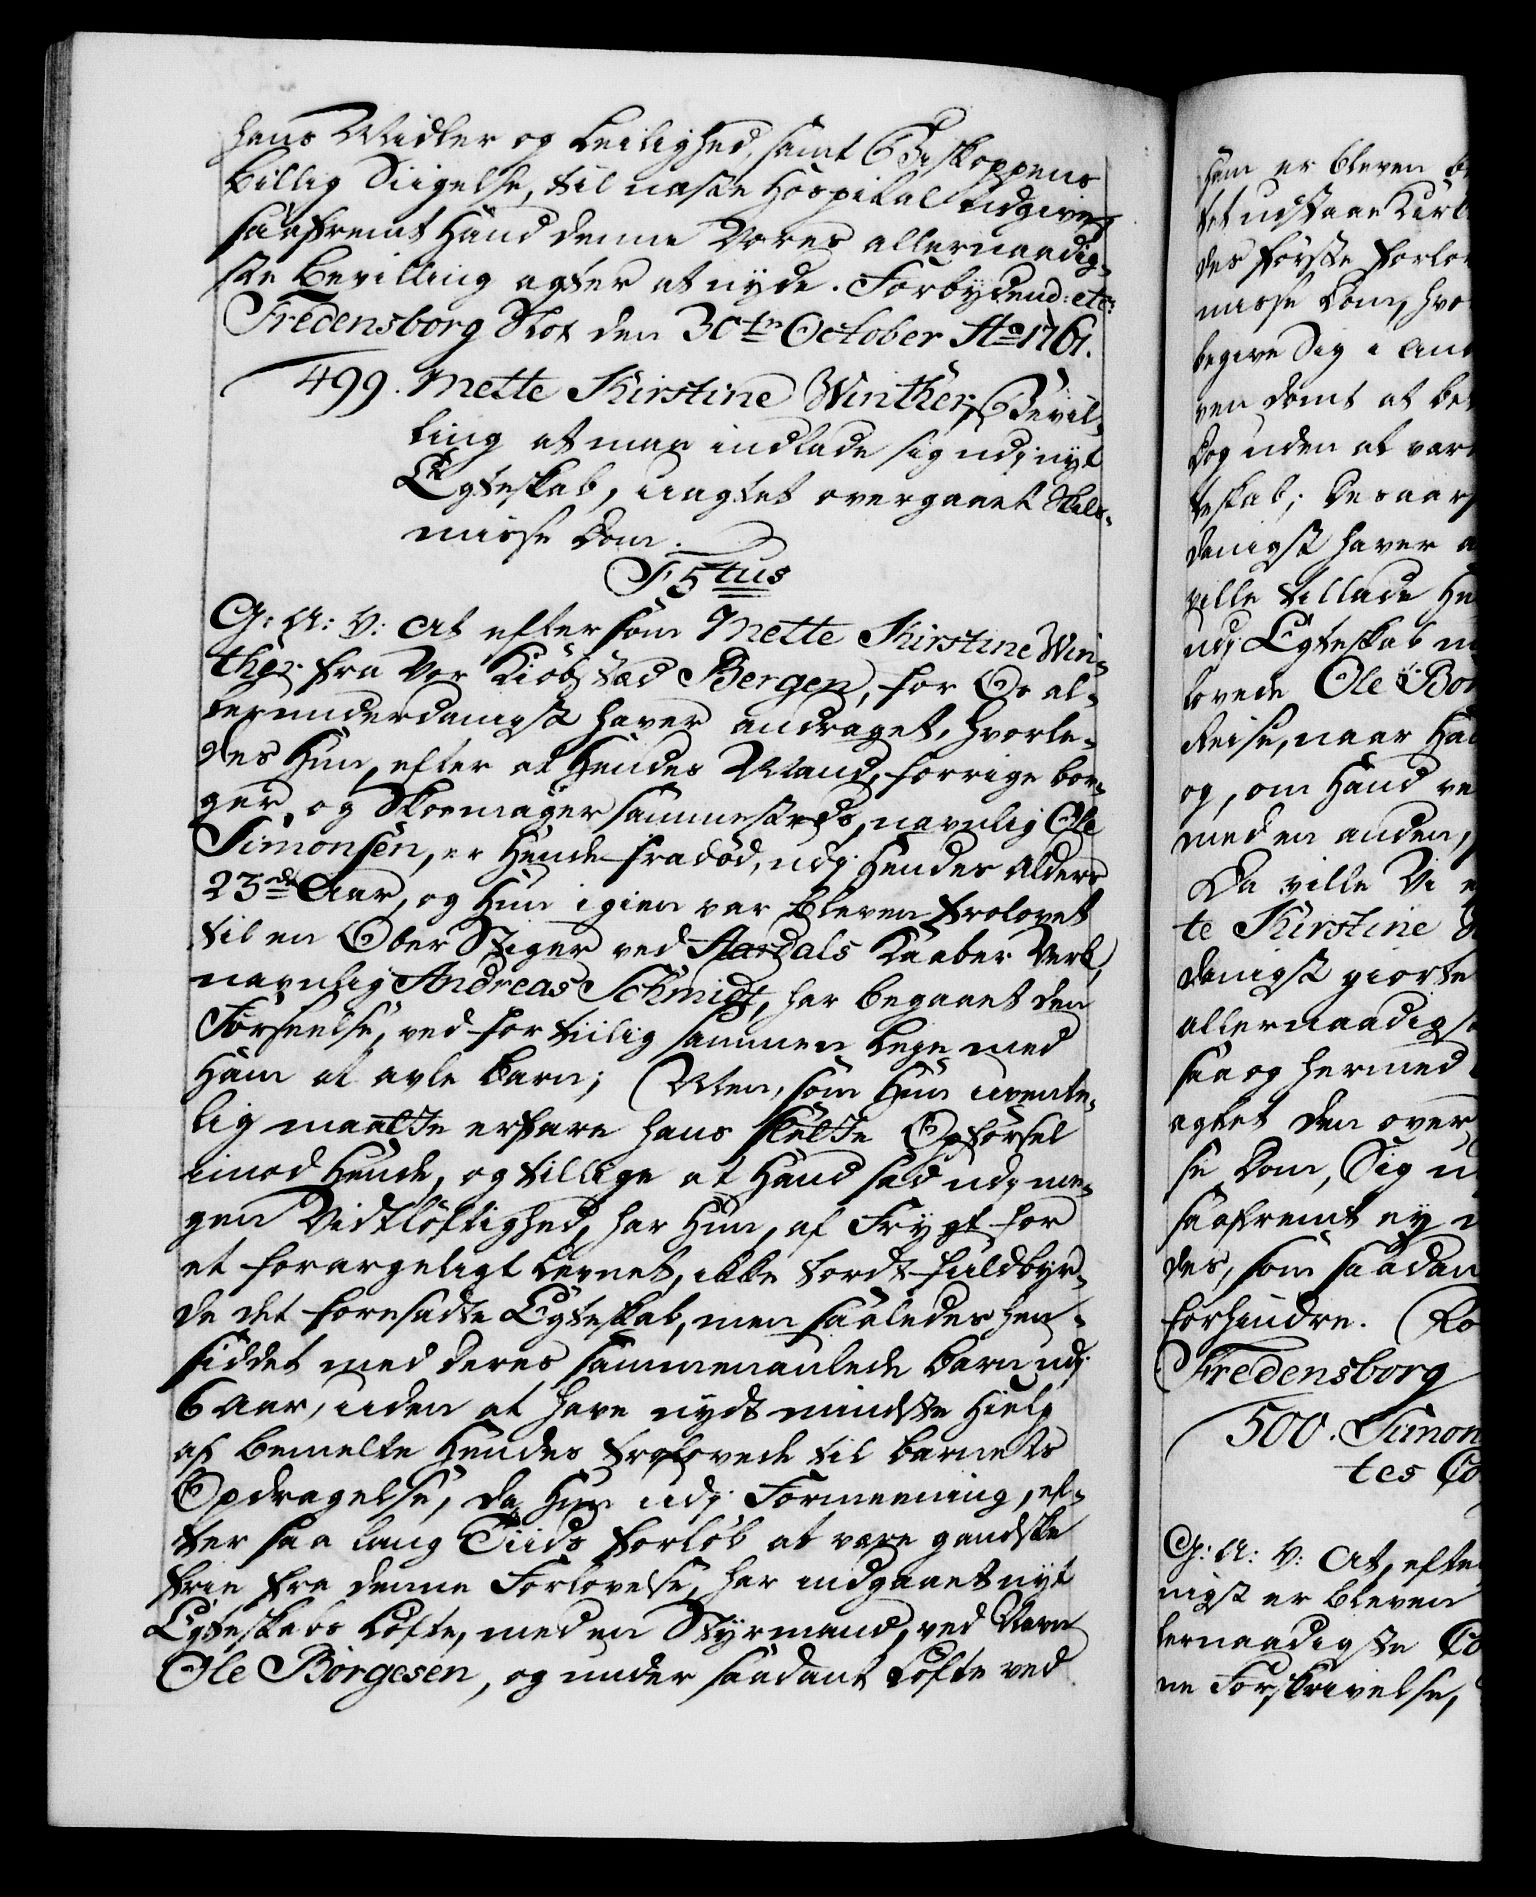 hans Midler og Leilighed, samt Biskoppens
billig Siigelse, til næste Hospital udgiver,
saafremt Hand denne Vores allernaadig-
ste Bevilling agter at nyde. Forbydend: etc:
Fredensborg Slot den 30te October Ao 1761.
499. Mette Kirstine Winther, Bevil-
ling at maa indlade sig udj nyt
Egteskab, uagtet overgaaet Skils-
misse Dom.
F 5tus
G: A: V: At eftersom Mette Kirstine Win-
ther fra Vor Kiøbstæd Bergen, for Os al-
lerunderdanigst haver andraget, hvorle-
des Hun, efter at Hendes Mand, forrige bor-
ger og Skoemager sammesteds, navnlig Ole
Simonsen, er Hende fradød, udj Hendes Alders
23de Aar, og Hun igien var bleven trolovet
til en Ober Stiger ved Aardals Kaaber Verk,
navnlig Andreas Schmidt, har begaaet den
Forseelse, ved for tiilig sammen leye med
Ham at avle barn; Men, som Hun uvente-
lig maatte erfare hans slette Opførsel
imod Hende, og tillige at Hand sad udj me-
gen Vidtløftighed, har Hun, af Frygt for
et forargeligt Levnet, ikke tordt fuldbyr-
de det foresadte Egteskab, men saaledes hen-
siddet med deres sammenavlede barn udj
6 Aar, uden at have nydt mindste Hielp
af bemelte Hendes trolovede til barnets
Opdragelse, da Hun udj Formeening, ef-
ter saa lang Tiids Forløb at være gandske
frie fra denne Forlovelse, har indgaaet nyt
Egteskabs Løfte, med en Styrmand, ved Navn
Ole Børgesen, og under saadant Løfte ved
ham er bleven
tet udstaae Kirk
des første forlo
misse Dom, hvo
begive Sig i
ven dømt at be
dog uden at vær
teskab; Desaar
danigst haver a
ville tillade He
udj Egteskab m
lovede Ole Bør
Reise, naar Ha
og, om Hand
med en anden,
Da ville Vi
te Kirstine W
danigst giorte
allernaadigst
saa og hermed
agtet den over
se Dom, Sig u
saafremt ey
des, som saadan
forhindre.
Fredensborg
500. Simon
tes Co
G: A: V: At, efte
nigst er bleven
lernaadigste Co
ne Forskrivelse,